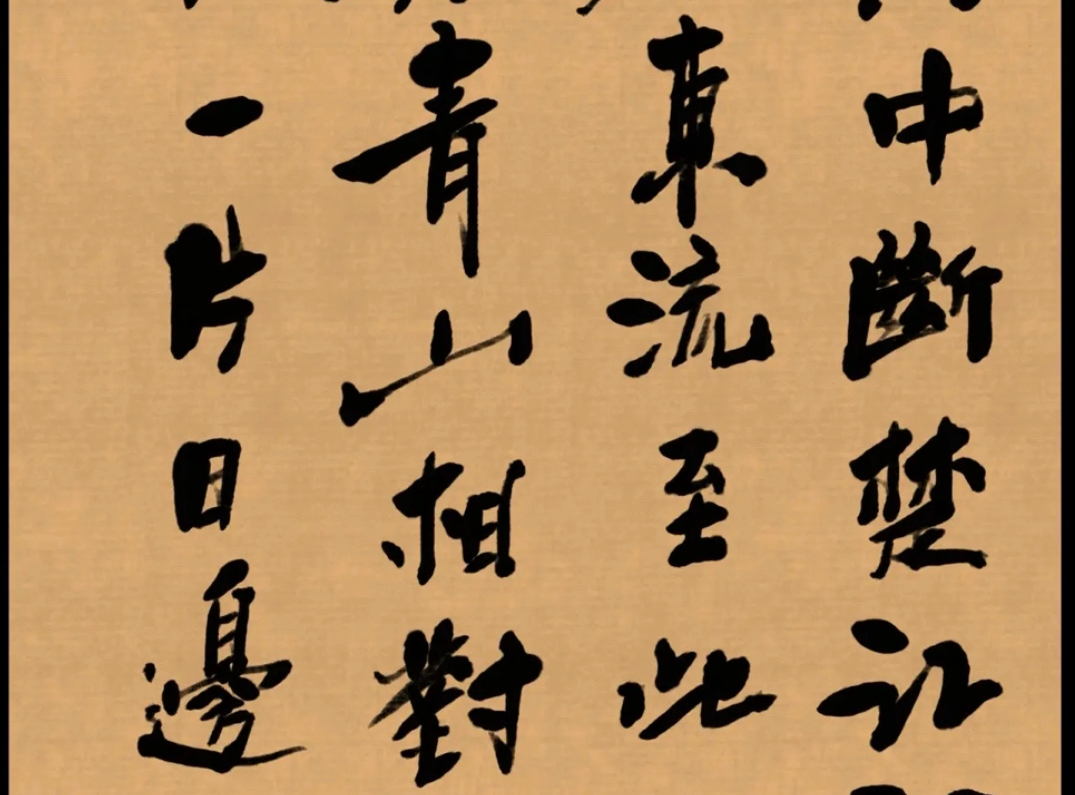 中斷楚江
東流至此
青山相對
一片日邊